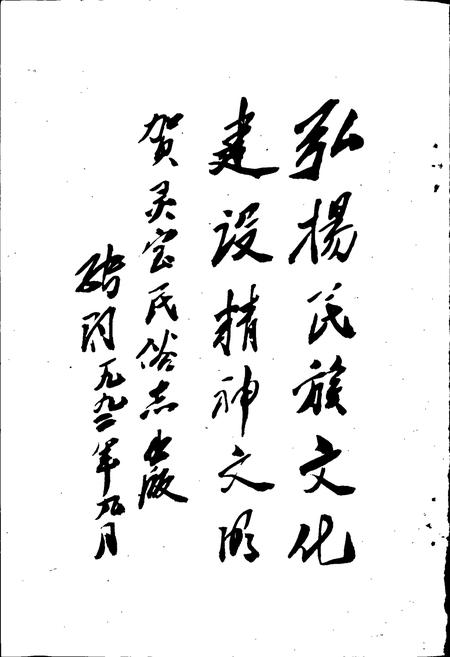 弘揚民族文化
建设精神文明
贺灵宝民俗志出版
一九九二年
月